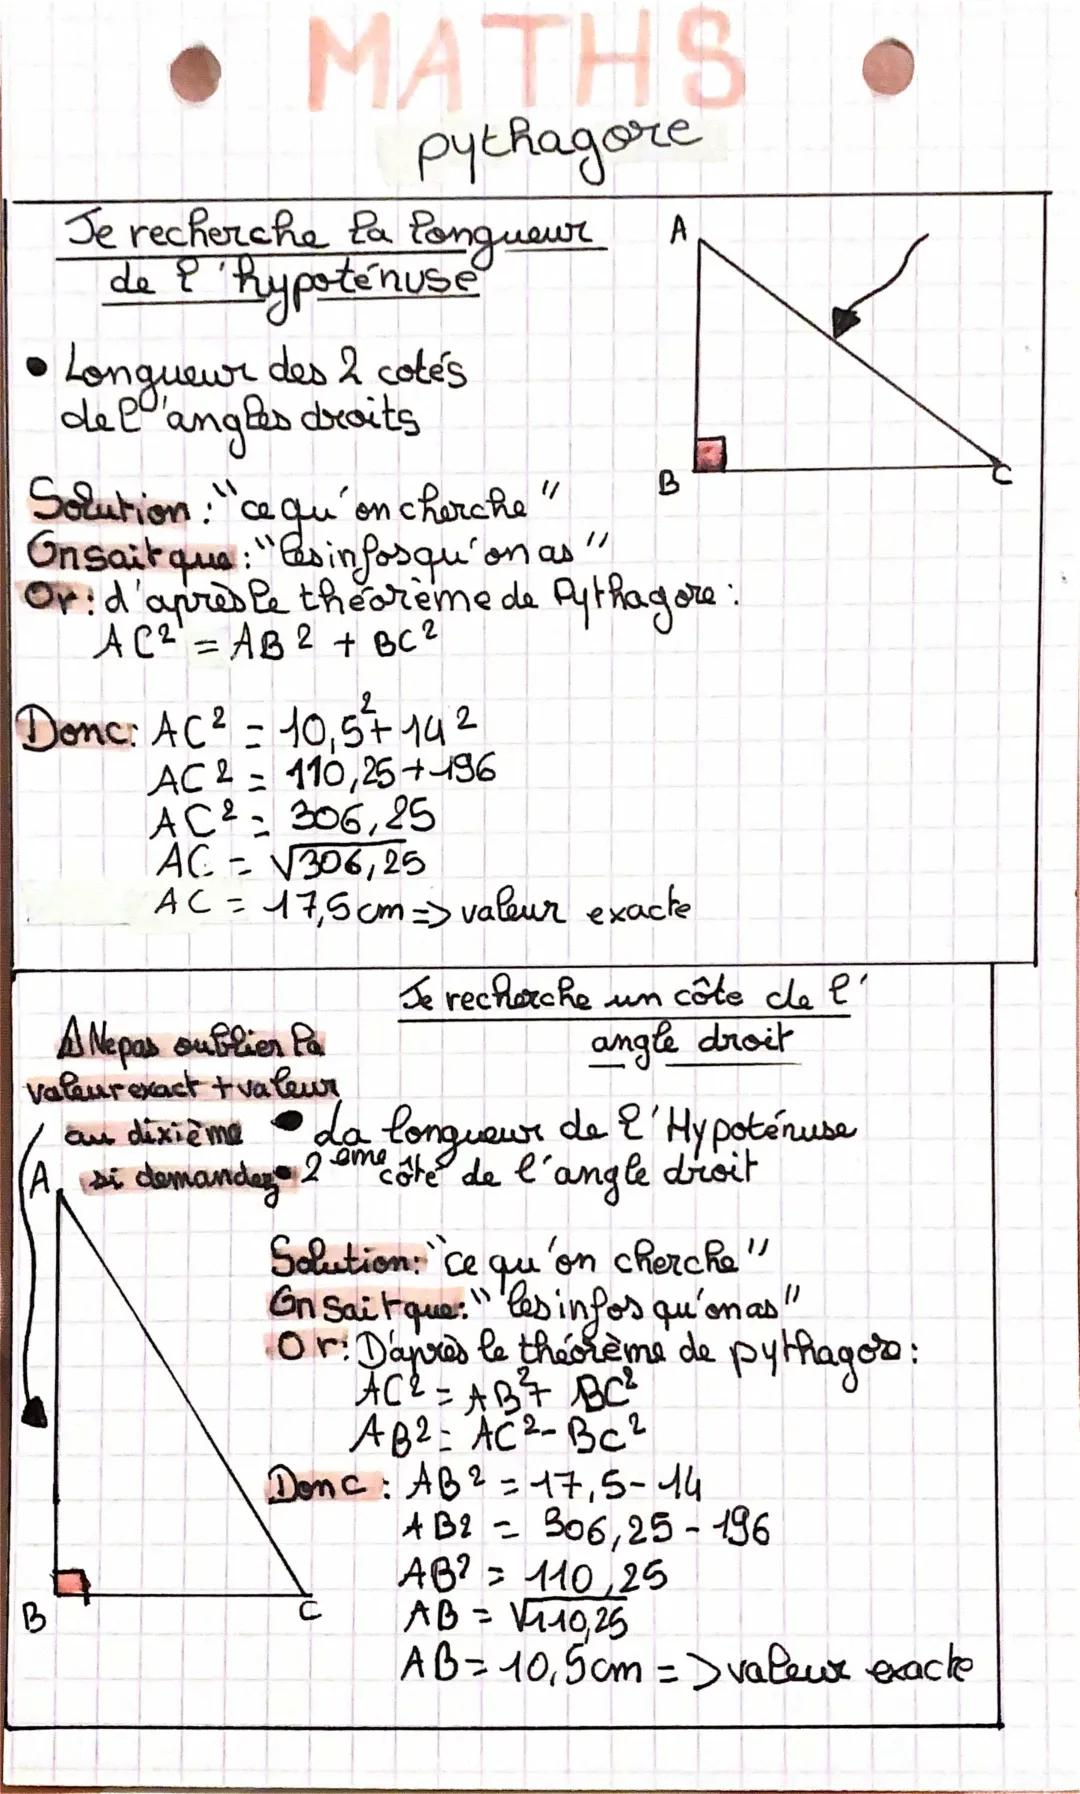 MATHS
pythagore
Je recherche la longueur
de l'hypoténuse
A
• Longueur des 2 cotés
de l'angles droits
B
C
Solution : "ce qu'on cherche"
On sait que : "les infos qu'on as"
Or : d'après le théorème de Pythagore :
AC² = AB² + BC²
Donc : AC² = 10,5² + 14²
AC² = 110,25 + 196
AC² = 306,25
AC = √306,25
AC = 17,5 cm => valeur exacte
Je recherche un côte de l'
angle droit
⚠ Ne pas oublier la
valeur exact + valeur
au dixième
si demandez
• La longueur de l'Hypoténuse
• 2ème côté de l'angle droit
A
Solution : "ce qu'on cherche"
On sait que : "les infos qu'on as"
Or : D'après le théorème de pythagore :
AC² = AB² + BC²
AB² = AC² - BC²
Donc : AB² = 17,5 - 14
AB2 = 306,25 - 196
AB² = 110,25
AB = √110,25
AB = 10,5 cm => valeur exacte
B
C